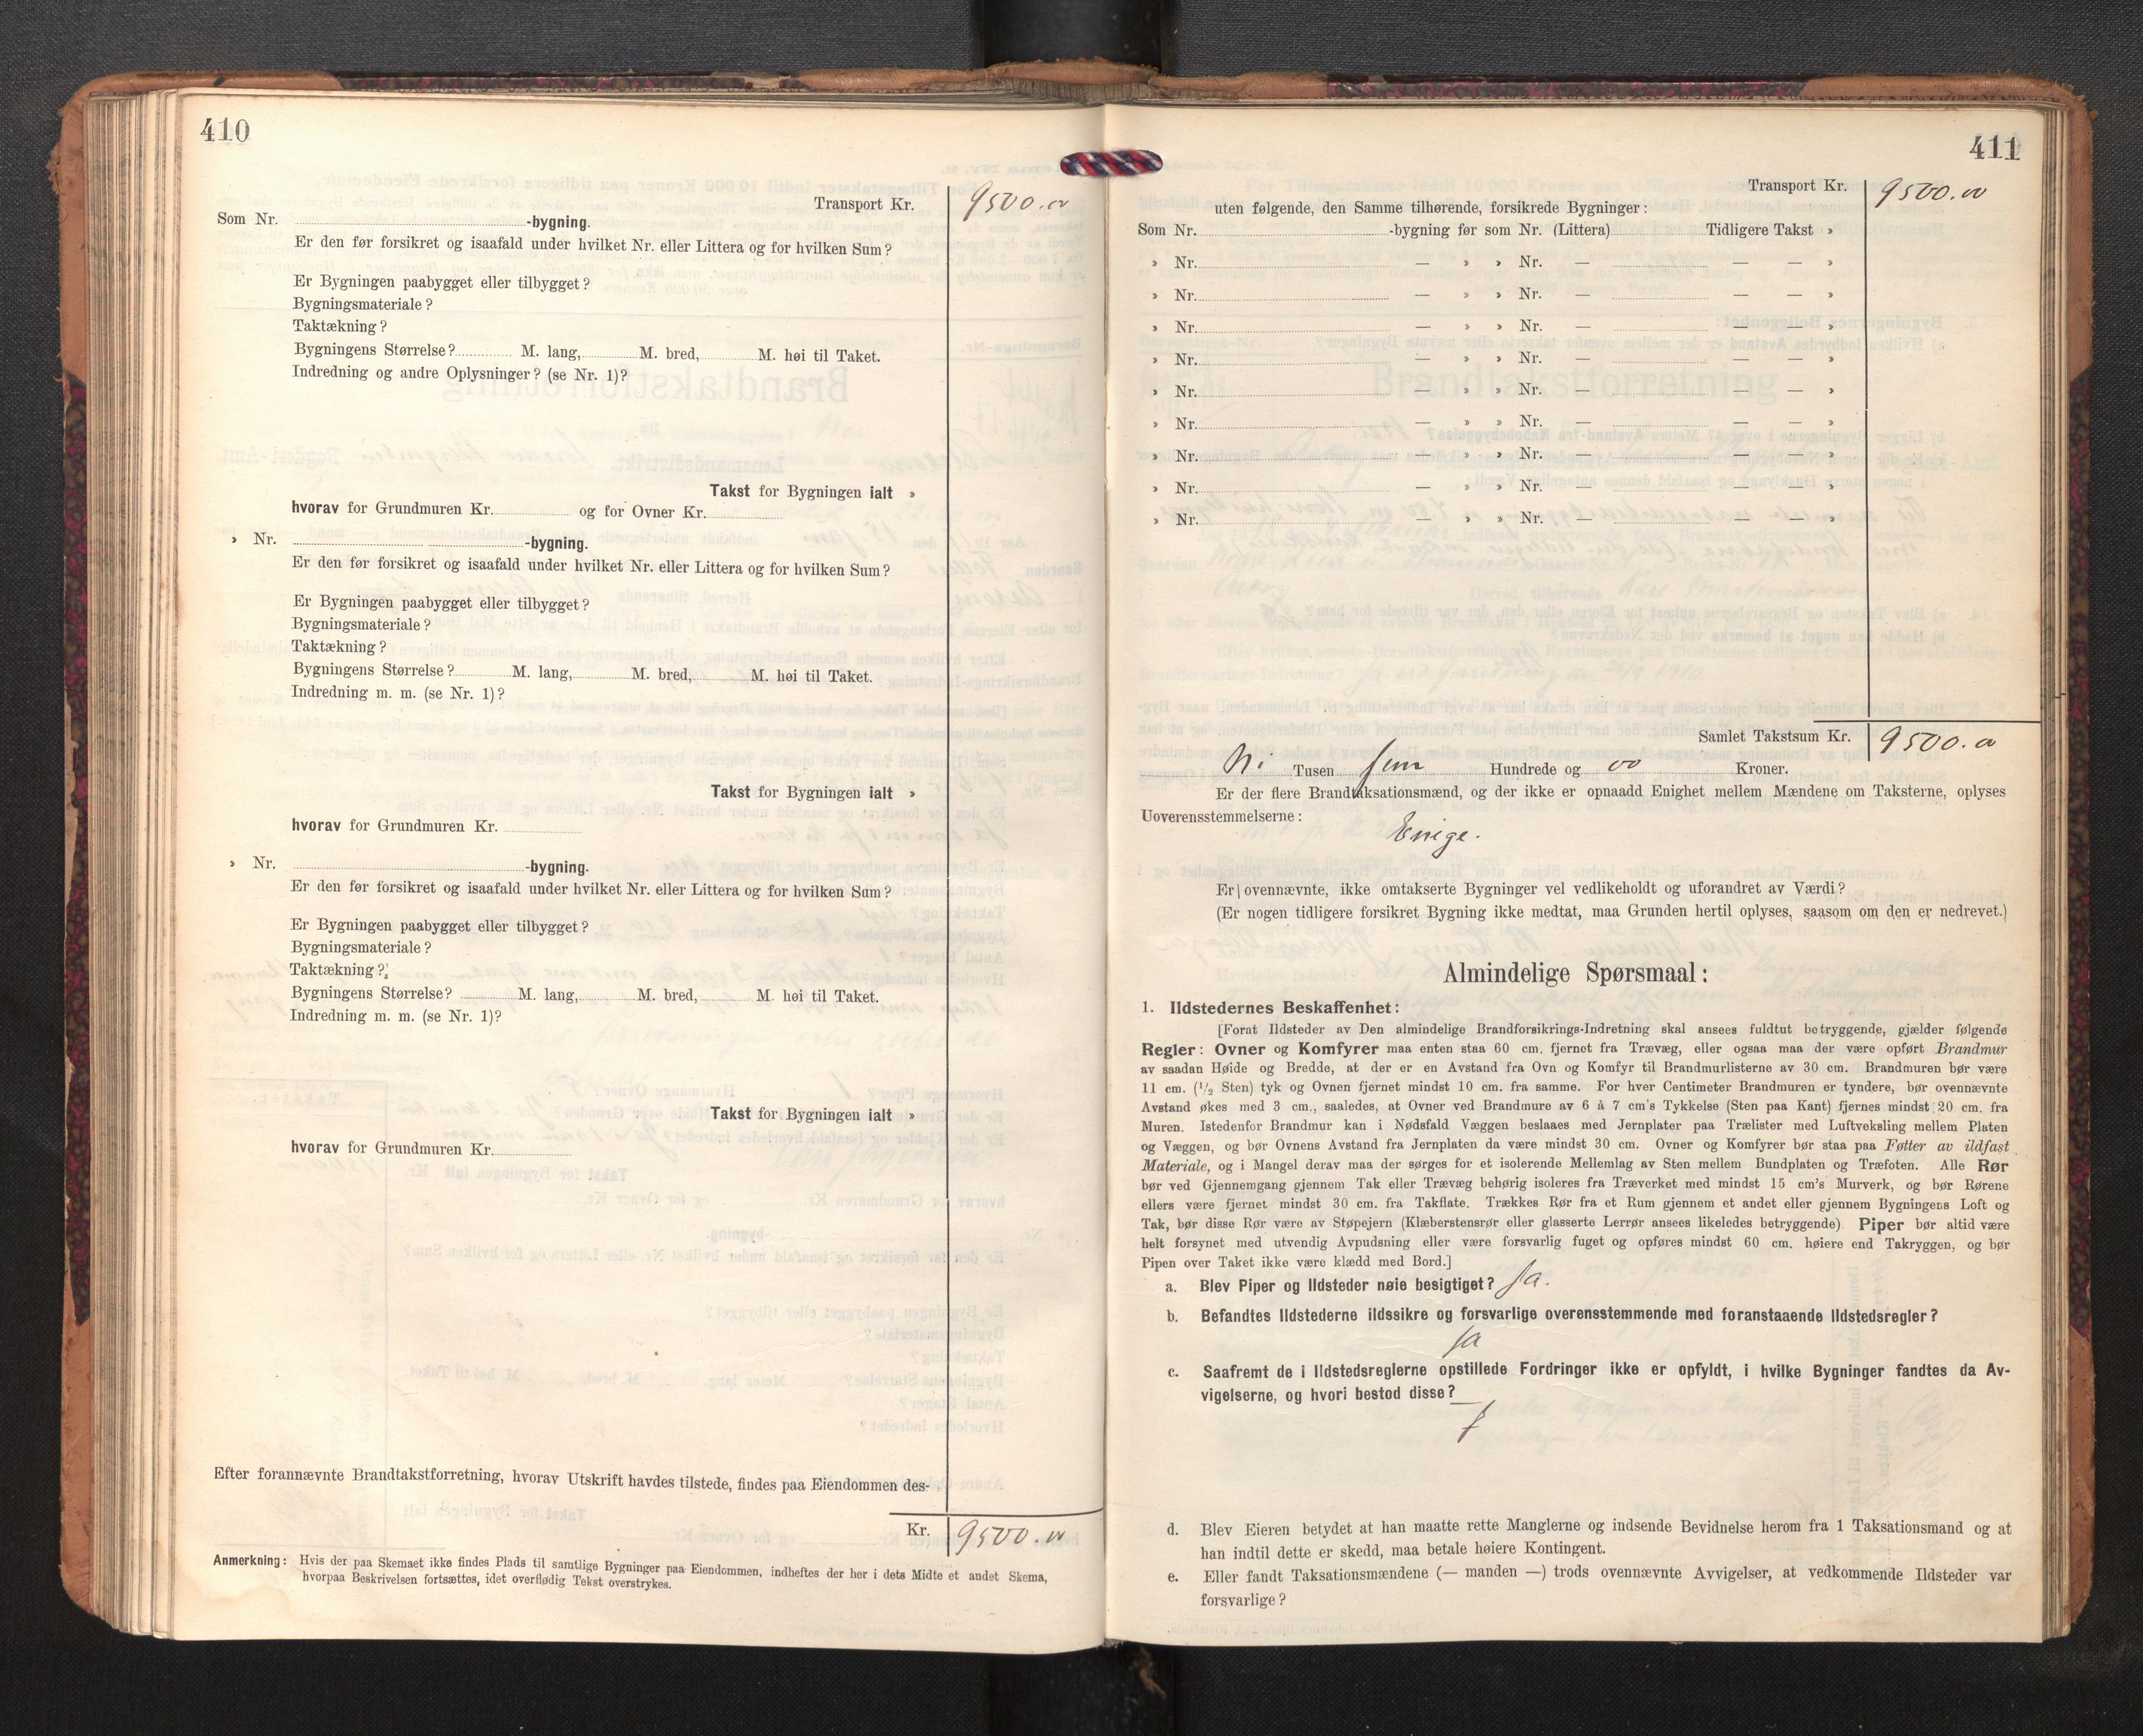 410
Transport Kr. 9500.00
Som Nr. -bygning.
Er den før forsikret og isaafald under hvilket Nr. eller Littera og for hvilken Sum?
Er Bygningen paabygget eller tilbygget?
Bygningsmateriale?
Taktækning?
Bygningens Størrelse? M. lang, M. bred, M. høi til Taket.
Indredning og andre Oplysninger? (se Nr. 1)?
Takst for Bygningen ialt »
hvorav for Grundmuren Kr. og for Ovner Kr.
» Nr. -bygning.
Er den før forsikret og isaafald under hvilket Nr. eller Littera og for hvilken Sum?
Er Bygningen paabygget eller tilbygget?
Bygningsmateriale?
Taktækning?
Bygningens Størrelse? M. lang, M. bred, M. høi til Taket.
Indredning m. m. (se Nr. 1)?
Takst for Bygningen ialt »
hvorav for Grundmuren Kr.
» Nr. -bygning.
Er den før forsikret og isaafald under hvilket Nr. eller Littera og for hvilken Sum?
Er Bygningen paabygget eller tilbygget?
Bygningsmateriale?
Taktækning?
Bygningens Størrelse? M. lang, M. bred, M. høi til Taket.
Indredning m. m. (se Nr. 1)?
Takst for Bygningen ialt »
hvorav for Grundmuren Kr.
Efter forannævnte Brandtakstforretning, hvorav Utskrift havdes tilstede, findes paa Eiendommen des-
Kr. 9500.00
Anmerkning: Hvis der paa Skemaet ikke findes Plads til samtlige Bygninger paa Eiendommen, indheftes der her i dets Midte et andet Skema,
hvorpaa Beskrivelsen fortsættes, idet overflødig Tekst overstrykes.
411
Transport Kr. 9500.00
uten følgende, den Samme tilhørende, forsikrede Bygninger:
Som Nr. -bygning før som Nr. (Littera) Tidligere Takst »
» Nr. — » » Nr. — — — »
» Nr. — » » Nr. — — — »
» Nr. — » » Nr. — — — »
» Nr. — » » Nr. — — — »
» Nr. — » » Nr. — — — »
» Nr. — » » Nr. — — — »
» Nr. — » » Nr. — — — »
» Nr. — » » Nr. — — — »
» Nr. — » » Nr. — — — »
Samlet Takstsum Kr. 9500.00
Ni Tusen fem Hundrede og 00 Kroner.
Er der flere Brandtaksationsmænd, og der ikke er opnaadd Enighet mellem Mændene om Taksterne, oplyses
Uoverensstemmelserne:
Enige.
Er ovennævnte, ikke omtakserte Bygninger vel vedlikeholdt og uforandret av Værdi?
(Er nogen tidligere forsikret Bygning ikke medtat, maa Grunden hertil oplyses, saasom om den er nedrevet.)
Almindelige Spørsmaal:
1. Ildstedernes Beskaffenhet:
[Forat Ildsteder av Den almindelige Brandforsikrings-Indretning skal ansees fuldtut betryggende, gjælder følgende
Regler: Ovner og Komfyrer maa enten staa 60 cm. fjernet fra Trævæg, eller ogsaa maa der være opført Brandmur
av saadan Høide og Bredde, at der er en Avstand fra Ovn og Komfyr til Brandmurlisterne av 30 cm. Brandmuren bør være
11 cm. (1/2 Sten) tyk og Ovnen fjernet mindst 10 cm. fra samme. For hver Centimeter Brandmuren er tyndere, bør ovennævnte
Avstand økes med 3 cm., saaledes, at Ovner ved Brandmure av 6 à 7 cm's Tykkelse (Sten paa Kant) fjernes mindst 20 cm. fra
Muren. Istedenfor Brandmur kan i Nødsfald Væggen beslaaes med Jernplater paa Trælister med Luftveksling mellem Platen
og Væggen, og bør Ovnens Avstand fra Jernplaten da være mindst 30 cm. Ovner og Komfyrer bør staa paa Føtter av ildfast
Materiale, og i Mangel derav maa der sørges for et isolerende Mellemlag av Sten mellem Bundplaten og Træfoten. Alle Rør
bør ved Gjennemgang gjennem Tak eller Trævæg behørig isoleres fra Træverket med mindst 15 cm's Murverk, og bør Rørene
ellers være fjernet mindst 30 cm. fra Takflate. Trækkes Rør fra et Rum gjennem et andet eller gjennem Bygningens Loft og
Tak, bør disse Rør være av Støpejern (Klæberstensrør eller glasserte Lerrør ansees likeledes betryggende). Piper bør altid være
helt forsynet med utvendig Avpudsning eller være forsvarlig fuget og opføres mindst 60 cm. høiere end Takryggen, og bør
Pipen over Taket ikke være klædd med Bord.]
a. Blev Piper og Ildsteder nøie besigtiget? Ja.
b. Befandtes Ildstederne ildssikre og forsvarlige overensstemmende med foranstaaende Ildstedsregler?
Ja
c. Saafremt de i Ildstedsreglerne opstillede Fordringer ikke er opfyldt, i hvilke Bygninger fandtes da Av-
vigelserne, og hvori bestod disse?
d. Blev Eieren betydet at han maatte rette Manglerne og indsende Bevidnelse herom fra 1 Taksationsmand og at
han indtil dette er skedd, maa betale høiere Kontingent.
e. Eller fandt Taksationsmændene (— manden —) trods ovennævnte Avvigelser, at vedkommende Ildsteder var
forsvarlige?